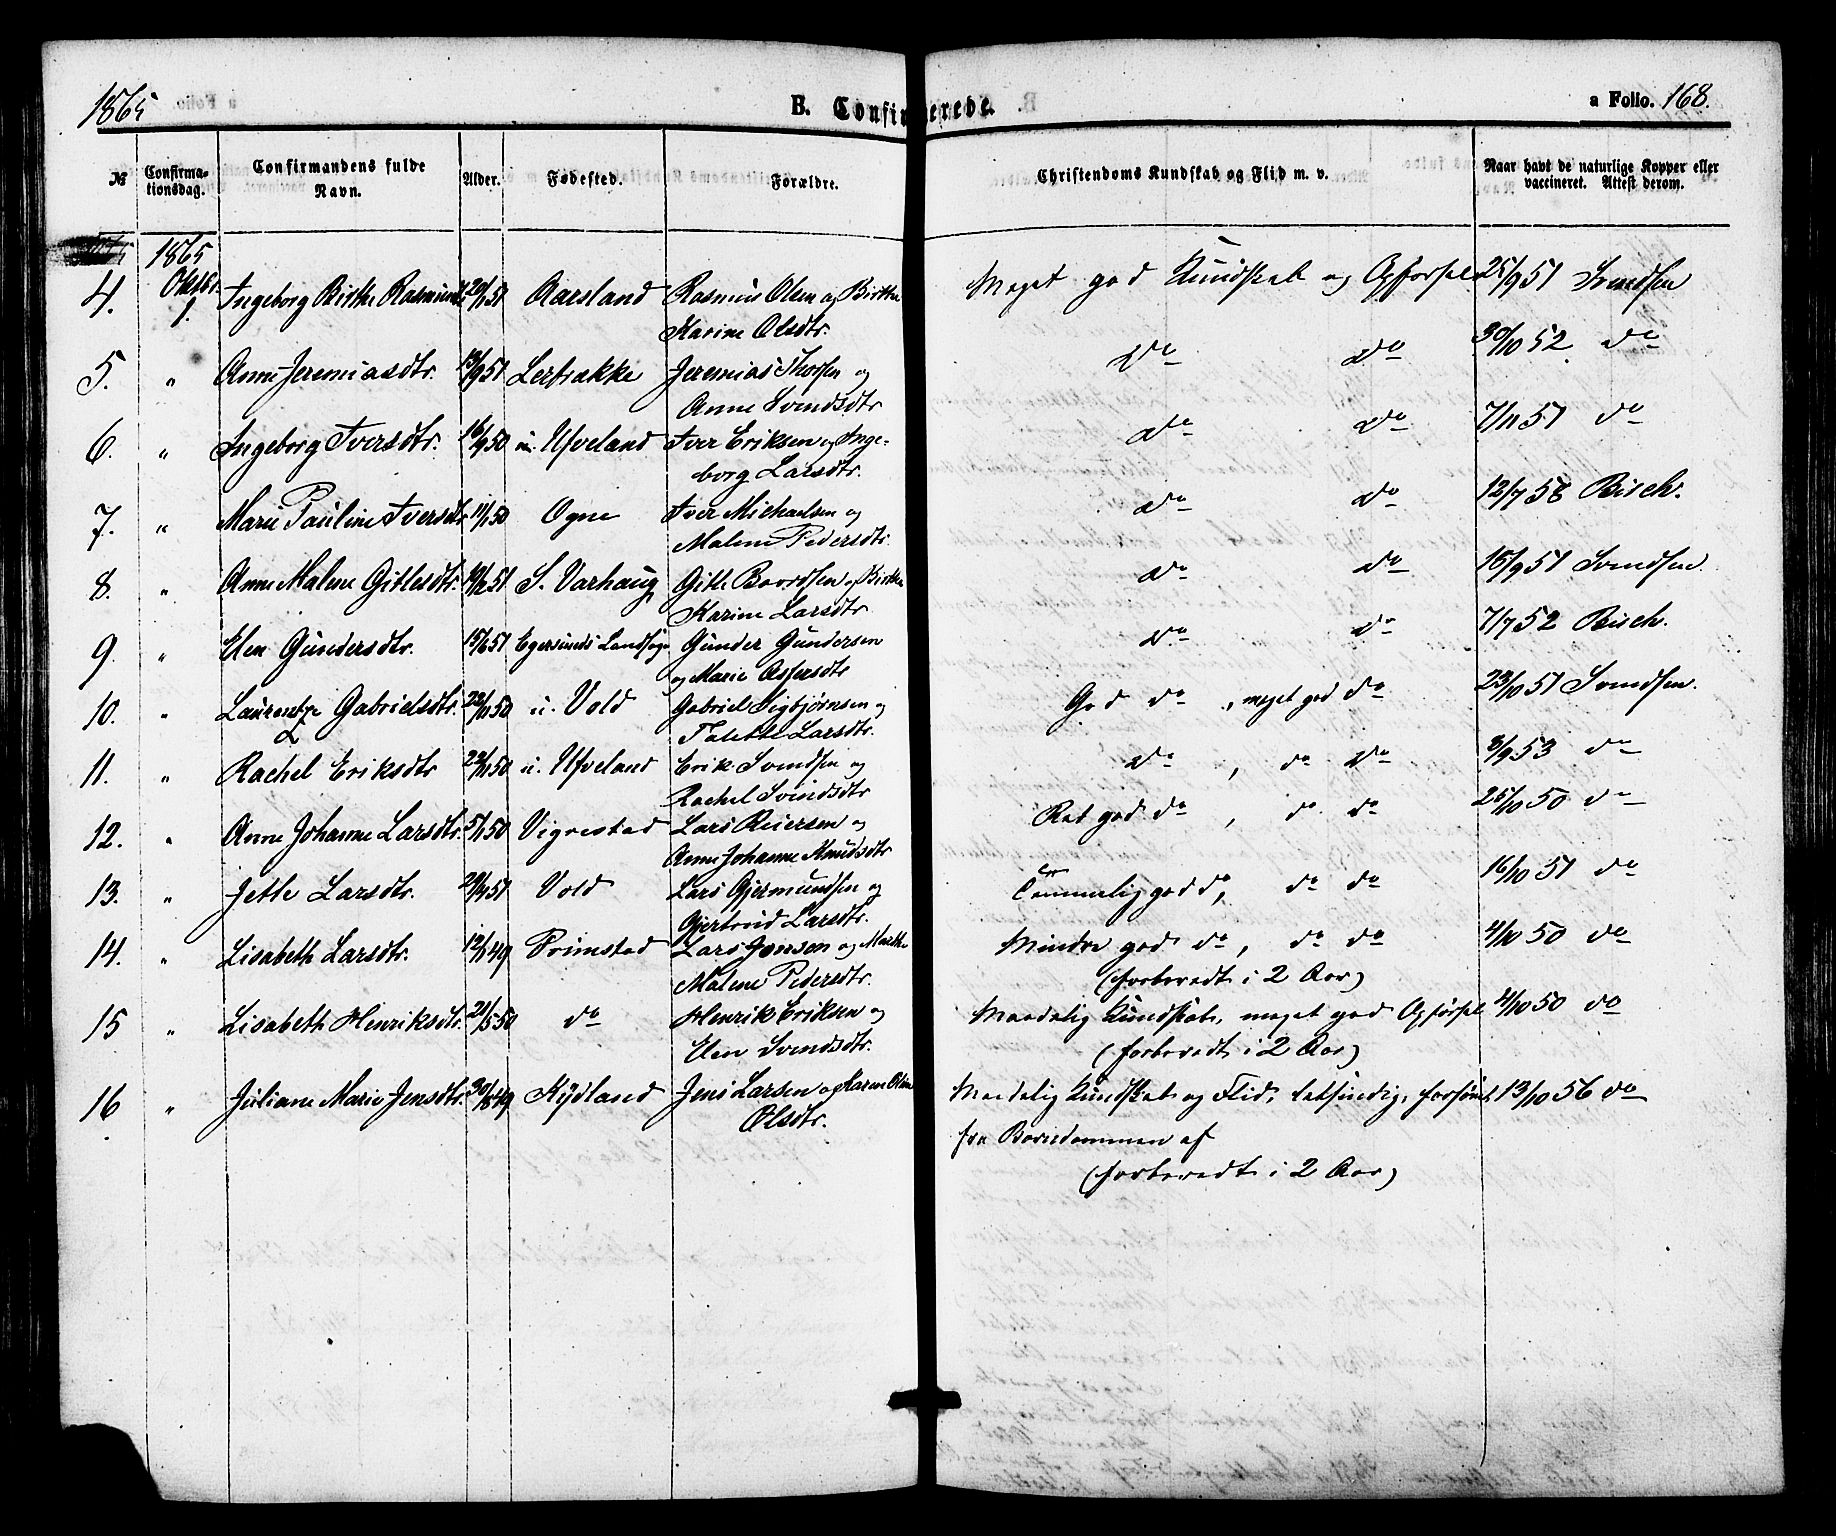 1865
B. Confirmerede.
a Folio. 168.
№ Confirmationsdag. Confirmandens fulde Navn. Alder. Fødested. Forældre. Christendoms Kundskab og Flid m. v. Naar havt de naturlige Kopper eller vaccineret. Attest derom.
1865
4. Oktbr. 1. Ingeborg Birthe Rasmusdtr 51 Aarsland Rasmus Olsen og Birthe Meget god Kundskab og Opførsel 25/9 51 Svendsen
Karine Olsdtr.
5. " Anne Jeremiasdtr. 13/9 51 Lerbrække Jeremias Thorsen og do do 30/10 52 do
Anne Svendsdtr
6. " Ingeborg Iversdtr. 16/9 50 u. Ufveland Iver Eriksen og Inge- do do 7/11 51 do
borg Larsdtr.
7. " Marie Pauline Iversdtr 11/1 50 Ogne Iver Michaelsen og do do 12/7 58 Bisch.
Malene Pedersdtr.
8. " Anne Malene Gitlesdtr. 51 S. Varhaug Gitle Baardsen og Birthe do do 15/9 51 Svendsen.
Karine Larsdtr
9. " Elen Gundersdtr. 15/6 51 Egersunds Landsogn Gunder Gundersen do do 7/7 52 Bisch.
og Marie Asersdtr
10. " Laurentze Gabrielsdtr. 22/11 50 u. Vold Gabriel Sigbjørnsen og God do, meget god do 23/10 51 Svendsen.
Talette Larsdtr.
11. " Rachel Eriksdtr 23/11 50 u. Ufveland Erik Svendsen og do, do do 8/9 53 do
Rachel Svendsdtr
12. " Anne Johanne Larsdtr. 5/1 50 Vigrestad Lars Reiersen og Ret god do, do do 25/10 50 do
Anne Johanne Knudsdtr
13. " Jette Larsdtr. 29/4 51 Vold Lars Gjermundsen og Temmelig god do, do do 16/10 51 do
Gjertrud Larsdtr.
14. " Lisabeth Larsdtr. 12/1 49 Primstad Lars Jonsen og Marthe Mindre god do, do do 4/10 50 do
Malene Pedersdtr. (forberedt i 2 Aar)
15 " Lisabeth Henriksdtr. 21/5 50 do Henrik Eriksen og Maadelig Kundskab, meget god Opførsel 4/10 50 do
Elen Svendsdtr. (forberedt i 2 Aar)
16 " Juliane Marie Jensdtr. 30/8 49 Kydland Jens Larsen og Karen Oline Maadelig Kundskab og Flid, letsindig, forsømt 13/10 56 do
Olsdtr. fra Barndommen af
(forberedt i 2 Aar)